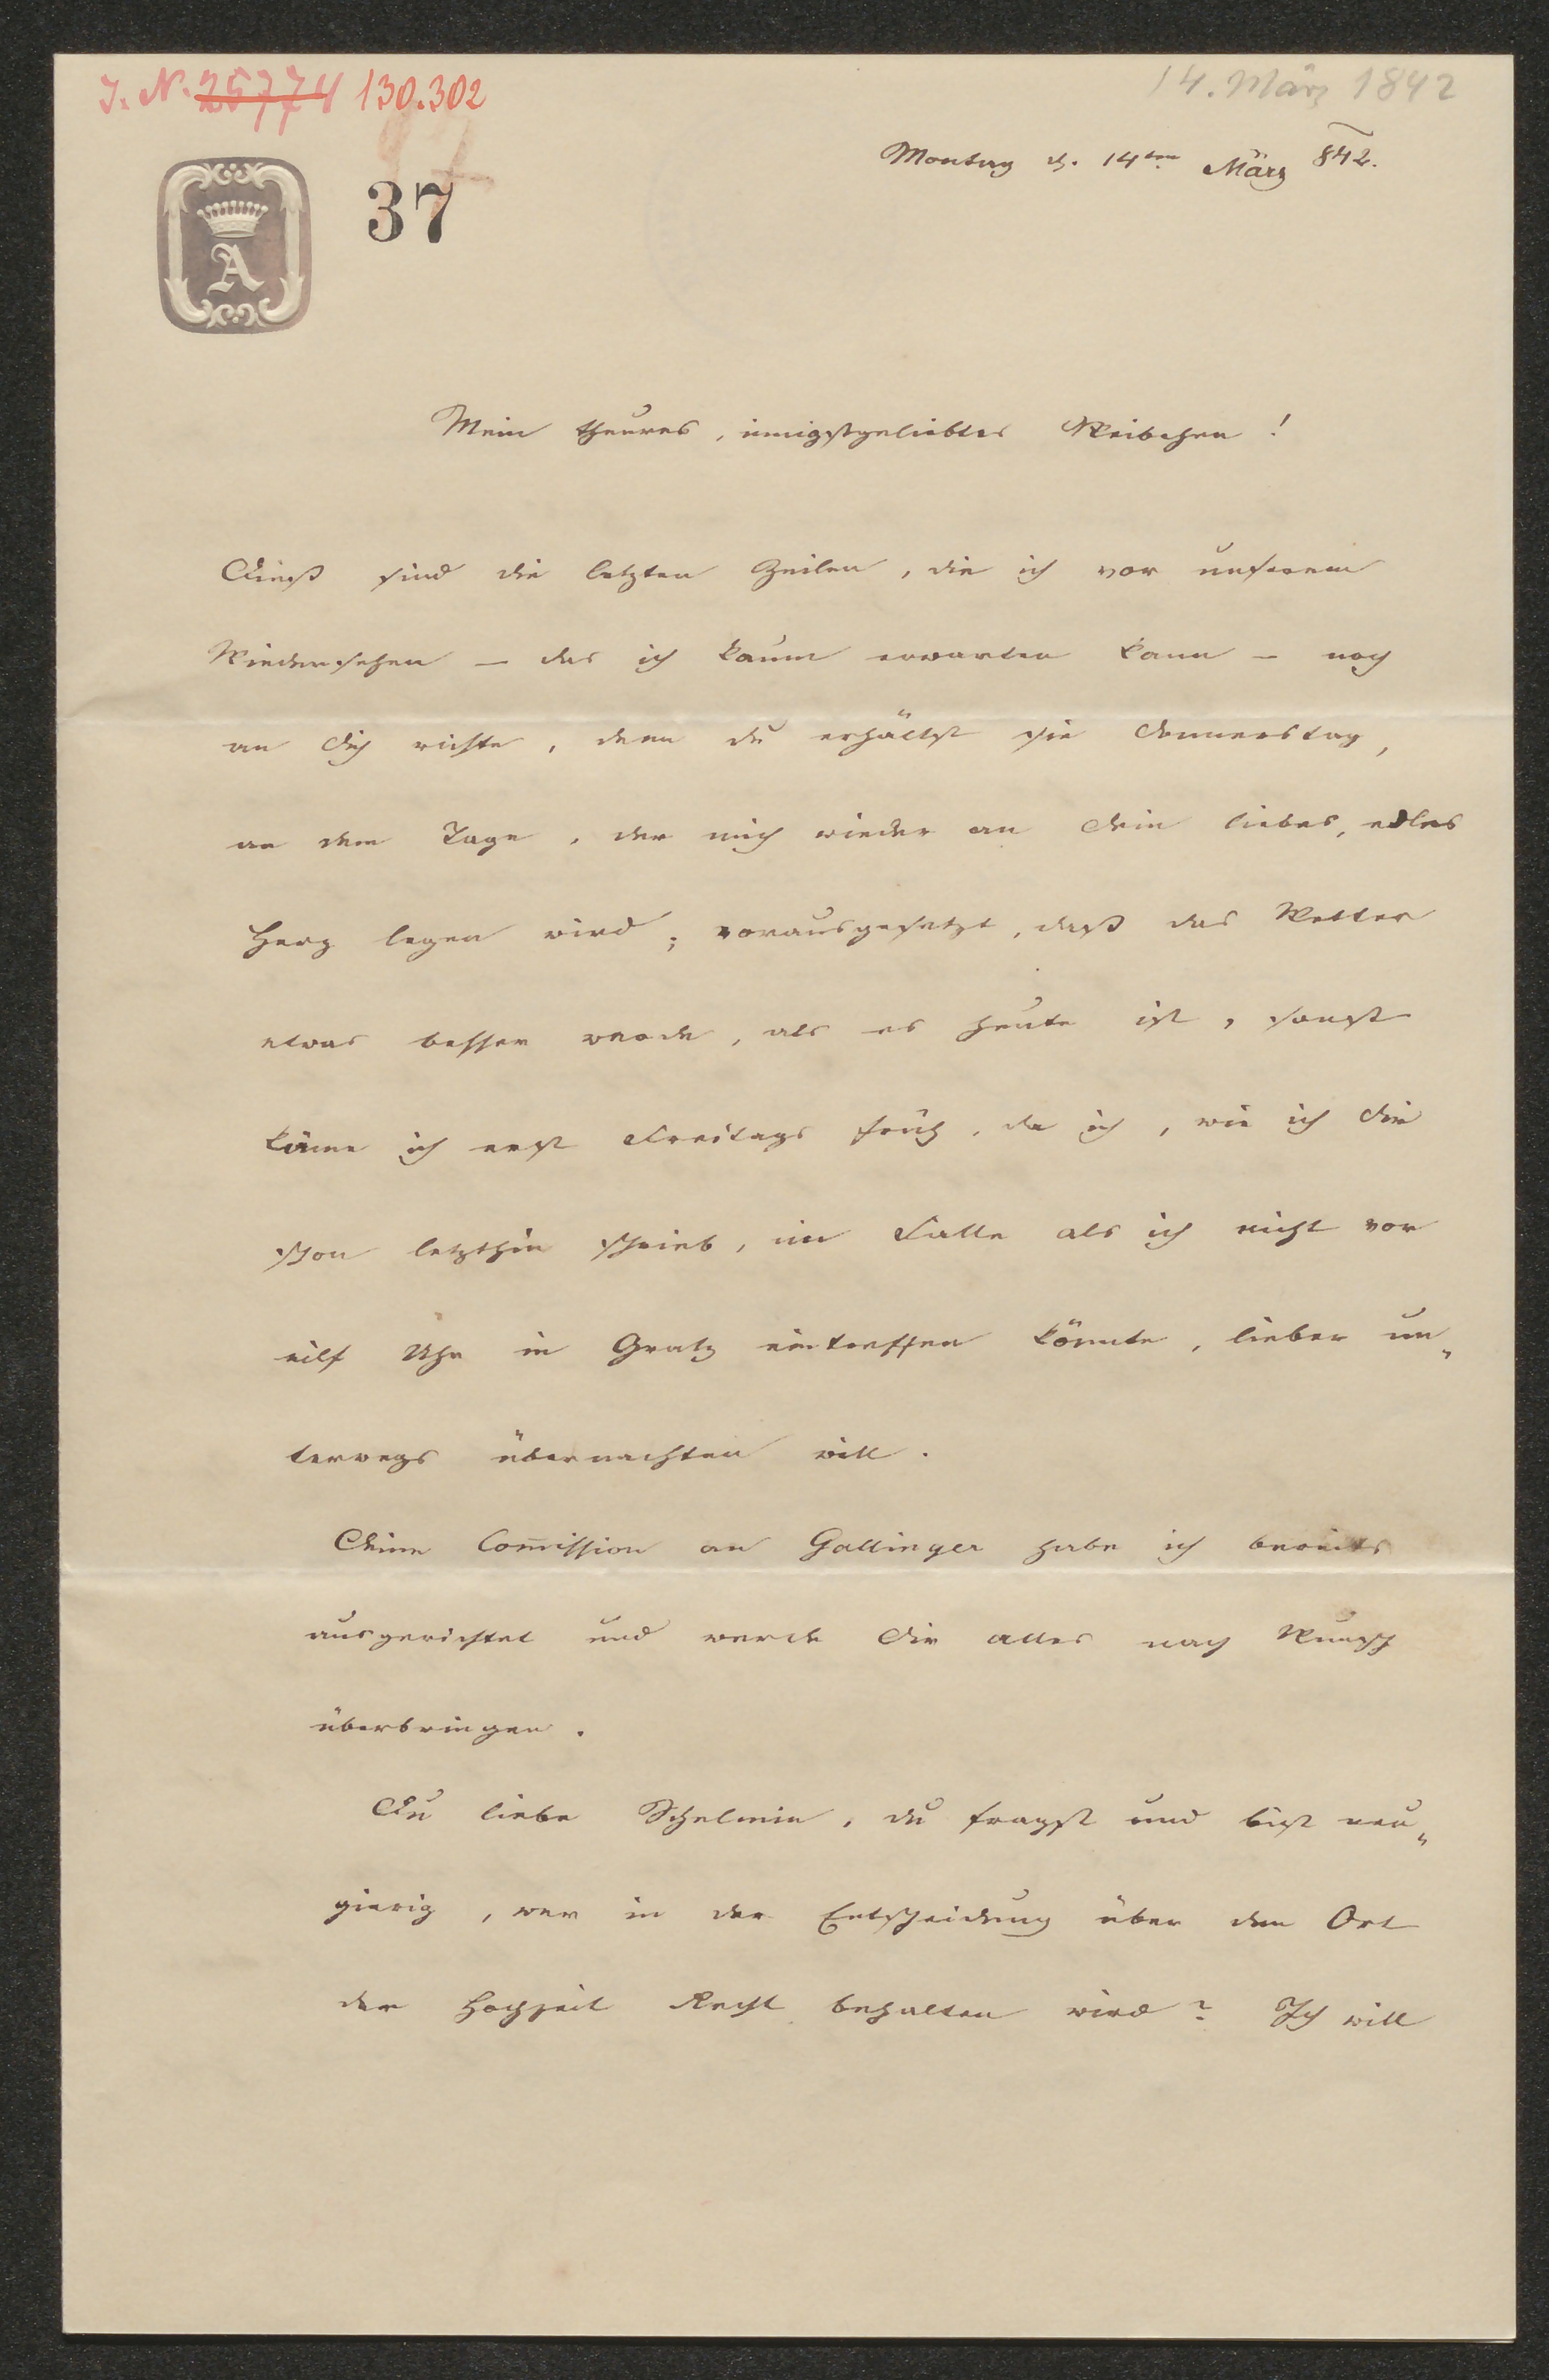 J. N. 25774 130.302
14. März 1842
Montag d. 14ten März 842.
37
A
Mein theures, innigstgeliebtes Weibchen!
Dieß sind die letzten Zeilen, die ich vor unserem
Wiedersehen – das ich kaum erwarten kann – noch
an dich richte, denn du erhältst sie Donnerstag,
an dem Tage, der mich wieder an dein liebes, edles
Herz legen wird; vorausgesetzt, daß das Wetter
etwas besser werde, als es heute ist, sonst
käme ich erst Freitags früh, da ich, wie ich dir
schon letzthin schrieb, im Falle als ich nicht vor
eilf Uhr in Gratz eintreffen könnte, lieber un„
terwegs übernachten will.
Deine Com̅ission an Gallinger habe ich bereits
ausgerichtet und werde dir alles nach Wunsch
überbringen.
Du liebe Schelmin, du fragst und bist neu„
gierig, wer in der Entscheidung über den Ort
der Hochzeit Recht behalten wird? Ich will